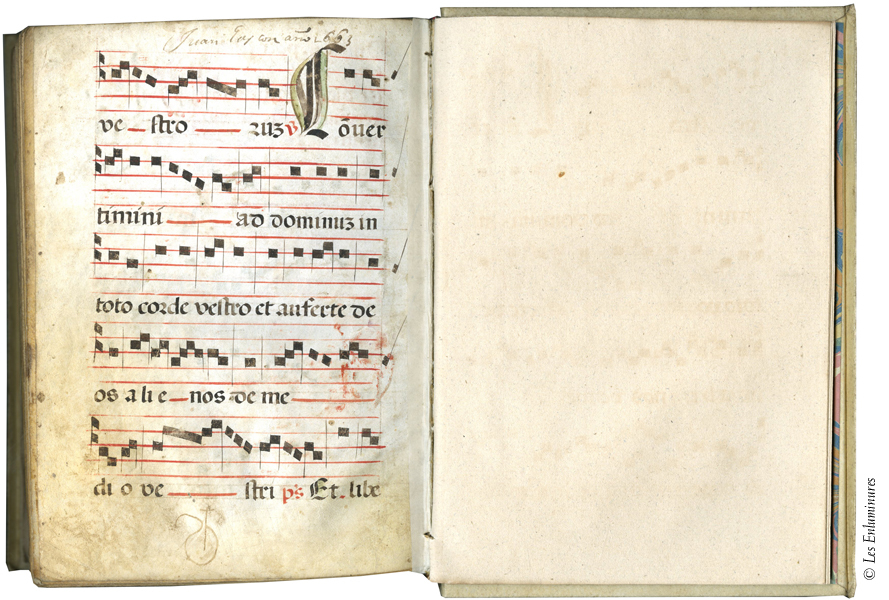 Juan año 1663
ve stro ruz V Cōuer
timini ad dominuz in
toto corde vestro et auferte de
os a li e nos de me
di o ve stri ps Et. libe
© Les Enluminures